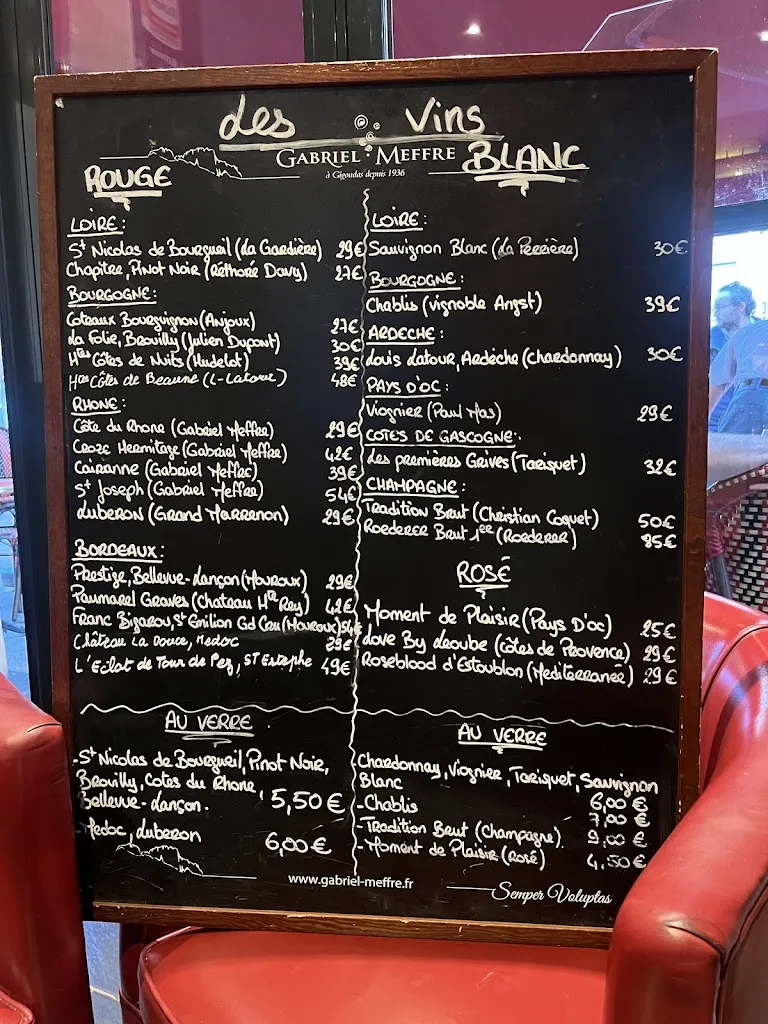 des Vins
GABRIEL MEFFRE
à Gigondas depuis 1936
ROUGE
LOIRE:
St Nicolas de Bourgueil (La Gardière) 29€
Chapitre, Pinot Noir (Réthoré Davy) 27€
BOURGOGNE:
Coteaux Bourguignon (Anjoux) 27€
La Folie, Brouilly (Julien Dupont) 30€
Htes Côtes de Nuits (Hudelot) 39€
Htes Côtes de Beaune (L-Latour) 48€
RHONE:
Côte du Rhone (Gabriel Meffre) 29€
Croze Hermitage (Gabriel Meffre) 42€
Cairanne (Gabriel Meffre) 39€
St Joseph (Gabriel Meffre) 54€
Luberon (Grand Marrenon) 29€
BORDEAUX:
Prestige, Bellevue-Lançon (Mouroux) 29€
Paumarel Graves (Chateau Hte Rey) 42€
Franc Bigarou, St Emilion Gd Cru (Mouroux) 54€
Château La Douce, Medoc 29€
L'Eclat de Tour de Pez, ST Estephe 49€
AU VERRE
-St Nicolas de Bourgueil, Pinot Noir,
Brouilly, Cotes du Rhone,
Bellevue-Lançon. 5,50€
-Medoc, Luberon 6,00€
BLANC
LOIRE:
Sauvignon Blanc (La Perrière) 30€
BOURGOGNE:
Chablis (vignoble Angst) 39€
ARDECHE:
Louis Latour, Ardèche (Chardonnay) 30€
PAYS D'OC:
Viognier (Paul Mas) 29€
COTES DE GASCOGNE:
Les premières Grives (Tariquet) 32€
CHAMPAGNE:
Tradition Brut (Christian Coquet) 50€
Roederer Brut 1er (Roederer) 85€
ROSÉ
Moment de Plaisir (Pays D'oc) 25€
Love By Leoube (côtes de Provence) 29€
Roseblood d'Estoublon (Mediterranée) 29€
AU VERRE
Chardonnay, Viognier, Tariquet, Sauvignon
Blanc 6,00€
-Chablis 7,00€
-Tradition Brut (Champagne). 9,00€
-Moment de Plaisir (Rosé) 4,50€
www.gabriel-meffre.fr
Semper Voluptas